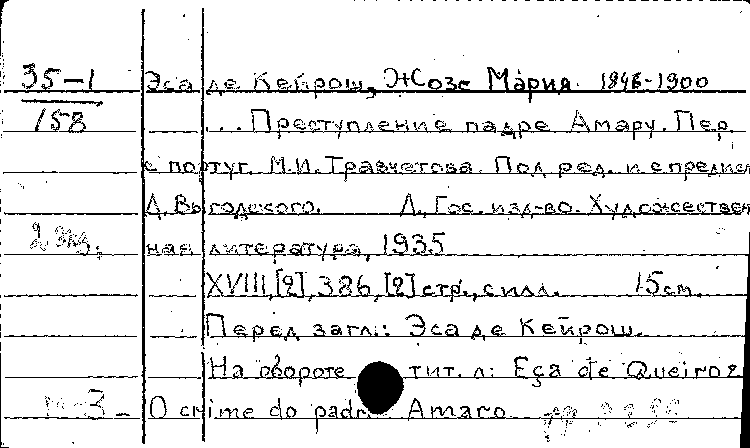 35-1 Эса де Кейрош, Жозе Мария. 1846-1900
158 ... Преступление падре Амару. Пер.
с португ. М.И. Травчетова. Под ред. и с предисл.
Д. Выгодского. Л., Гос. изд-во. Художествен
2 экз. ная литература, 1935
XVIII,[2],386,[2] стр., с илл. 15см.
Перед загл.: Эса де Кейрош.
На обороте тит. л: Eça de Queiroz
O crime do padre Amaro